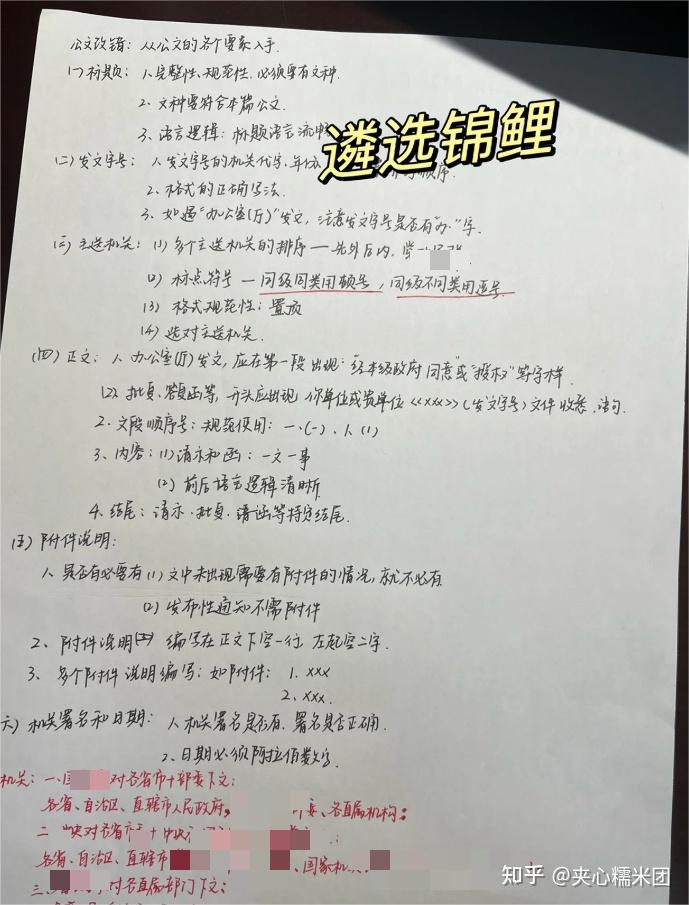 公文改错：从公文的各个要素入手.
(一)标题：1、完整性、规范性，必须要有文种.
2. 文种要符合本篇公文.
3、语言逻辑：标题语言流畅
遴选锦鲤
(二)发文字号：1、发文字号的机关代字、年份、顺序.
2. 格式的正确写法.
3、如遇“办公室(厅)”发文，注意发文字号是否有“办”字.
(三)主送机关：(1)多个主送机关的排序—先外后内，
(2)标点符号—同级同类用顿号，同级不同类用逗号.
(3)格式规范性：置顶
(4)选对主送机关.
(四)正文：1、办公室(厅)发文，应在第一段出现：“经本级政府同意”或“授权”等字样.
(2)、批复、答复函等，开头应出现，你单位或贵单位《xxx》(发文字号)文件收悉.语句.
2. 文段顺序号：规范使用：一、(一)、1、(1)
3、内容：(1)请示和函：一文一事
(2)前后语言逻辑清晰
4、结尾：请示、批复、请函等特定结尾.
(五)附件说明：
1、是否有必要有(1)文中未出现需要有附件的情况，就不必有
(2)发布性通知不需附件
2、附件说明 编写在正文下空一行，左起空二字.
3、多个附件说明编写：如附件： 1. xxx
2. xxx.
六)机关署名和日期：1、机关署名是否有、署名是否正确.
2、日期必须阿拉伯数字.
机关：一、对各省市+部委下文：
各省、自治区、直辖市人民政府，委、各直属机构：
二 央对各省市+中央
各省、自治区、直辖市 国家机
三、对各直属部门下文：
知乎 @夹心糯米团